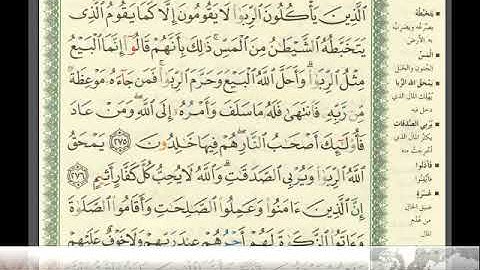 ٱلَّذِينَ يَأْكُلُونَ ٱلرِّبَوٰا۟ لَا يَقُومُونَ إِلَّا كَمَا يَقُومُ ٱلَّذِى
يَتَخَبَّطُهُ ٱلشَّيْطَٰنُ مِنَ ٱلْمَسِّ ذَٰلِكَ بِأَنَّهُمْ قَالُوٓا۟ إِنَّمَا ٱلْبَيْعُ
مِثْلُ ٱلرِّبَوٰا۟ وَأَحَلَّ ٱللَّهُ ٱلْبَيْعَ وَحَرَّمَ ٱلرِّبَوٰا۟ فَمَن جَآءَهُۥ مَوْعِظَةٌ
مِّن رَّبِّهِۦ فَٱنتَهَىٰ فَلَهُۥ مَا سَلَفَ وَأَمْرُهُۥٓ إِلَى ٱللَّهِ وَمَنْ عَادَ
فَأُو۟لَٰٓئِكَ أَصْحَٰبُ ٱلنَّارِ هُمْ فِيهَا خَٰلِدُونَ ٢٧٥ يَمْحَقُ
ٱللَّهُ ٱلرِّبَوٰا۟ وَيُرْبِى ٱلصَّدَقَٰتِ وَٱللَّهُ لَا يُحِبُّ كُلَّ كَفَّارٍ أَثِيمٍ ٢٧٦
إِنَّ ٱلَّذِينَ ءَامَنُوا۟ وَعَمِلُوا۟ ٱلصَّٰلِحَٰتِ وَأَقَامُوا۟ ٱلصَّلَوٰةَ
وَءَاتَوُا۟ ٱلزَّكَوٰةَ لَهُمْ أَجْرُهُمْ عِندَ رَبِّهِمْ وَلَا خَوْفٌ عَلَيْهِمْ
يَتَخَبَّطُهُ
يصرعه ويضرب به
الأرض
المس
الجنون والخبل
يمحق الله الربا
يهلك المال الذي
دخل فيه
يربي الصدقات
يكثر المال الذي
أخرجت منه
فأذنوا
فأيقنوا
عسرة
ضيق الحال
من عدم
المال